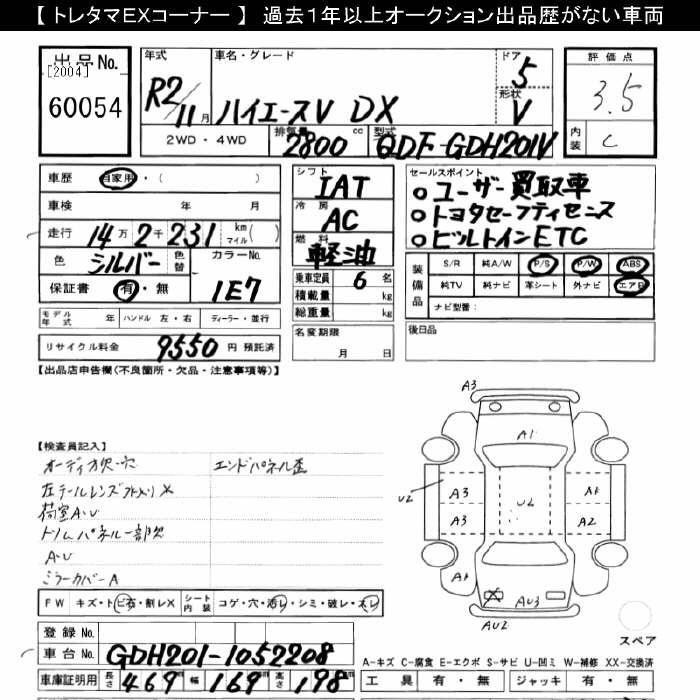 【 トレタマEXコーナー 】 過去1年以上オークション出品歴がない車両
出品 No.
[2004]
60054
年式
R2/11 月
車名・グレード
ハイエースV DX
ドア
5
形状
V
2WD ・ 4WD
排気量
2800 cc
型式
QDF-GDH201V
評価点
3.5
内装
C
車歴 自家用 ・ ( )
車検 年 月
走行 14万2千231 km マイル ( )
色 シルバー 色替 カラーNo. 1E7
保証書 有・無
モデル年式 年 ハンドル 左・右 ディーラー・並行
リサイクル料金 9550 円 預託済
シフト
IAT
冷房
AC
燃料
軽油
乗車定員 6 名
積載量 kg
総重量 kg
名変期限
月 日
セールスポイント
○ユーザー買取車
○トヨタセーフティセンス
○ビルトインETC
装備品
S/R 純A/W P/S P/W ABS
純TV 純ナビ 革シート 外ナビ エアB
ナビ型番:
後日品
【出品店申告欄(不良箇所・欠品・注意事項等)】
【検査員記入】
オーディオ欠・穴
エンドパネル歪
左テールレンズ
荷室A・U
パネル一部欠
A・U
ミラーカバーA
FW キズ・トビ石・割レX シート内装 コゲ・穴・汚レ・シミ・破レ・スレ
登録 No.
車台 No. GDH201-1052208
車庫証明用 長さ 469 幅 169 高さ 198
A3
A1
U2
A3
A3
U2
A1
A2
A1
X
AU3
AU2
スペア
A-キズ C-腐食 E-エクボ S-サビ U-凹ミ W-補修 XX-交換済
工具 有・無 ジャッキ 有・無